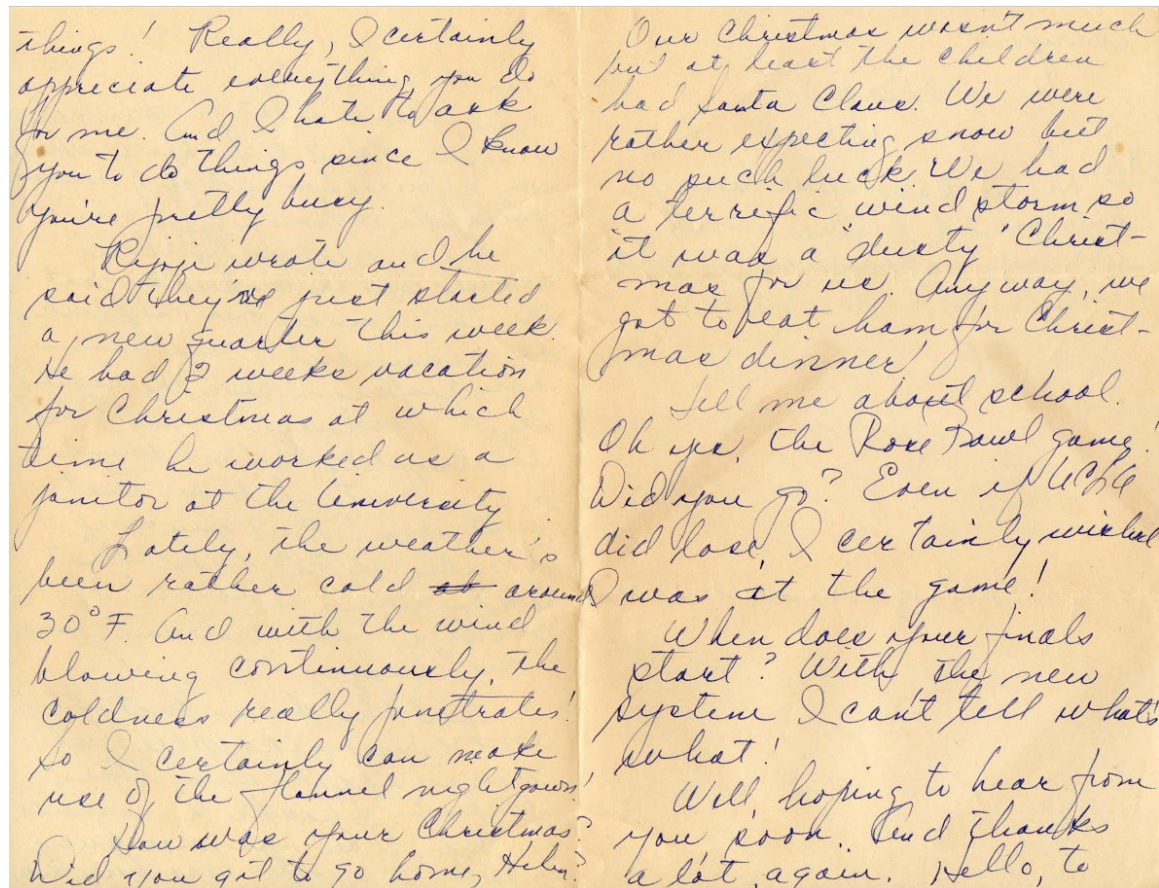 things! Really, I certainly
appreciate everything you do
for me. And I hate to ask
you to do things since I know
you're pretty busy.
Ryoji wrote and he
said they've just started
a new quarter this week.
He had 2 weeks vacation
for Christmas at which
time he worked as a
janitor at the University.
Lately, the weather's
been rather cold at around
30° F. And with the wind
blowing continuously, the
coldness really penetrates!
so I certainly can make
use of the flannel nightgown!
How was your Christmas?
Did you get to go home, Helen?
Our Christmas wasn't much
but at least the children
had Santa Claus. We were
rather expecting snow but
no such luck. We had
a terrific wind storm so
it was a "dusty" Christ-
mas for us. Anyway, we
got to eat ham for Christ-
mas dinner!
Tell me about school.
Oh yes, the Rose Bowl game!
Did you go? Even if UCLA
did lose, I certainly wished
I was at the game!
When does your finals
start? With the new
system I can't tell what's
what!
Well, hoping to hear from
you soon. And thanks
a lot, again. Hello, to